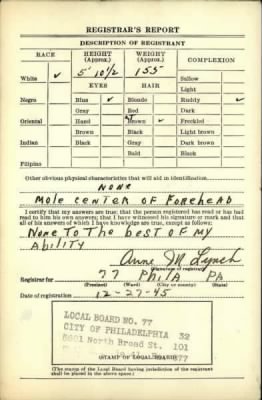 REGISTRAR'S REPORT
DESCRIPTION OF REGISTRANT
RACE HEIGHT (Approx.) WEIGHT (Approx.) COMPLEXION
White ✓ 5' 10 1/2 155 Sallow
EYES HAIR Light
Negro Blue ✓ Blonde Ruddy ✓
Gray Red Dark
Oriental Hazel Brown ✓ Freckled
Brown Black Light brown
Indian Black Gray Dark brown
Bald Black
Filipino
Other obvious physical characteristics that will aid in identification
NONE
MOLE CENTER OF FOREHEAD
I certify that my answers are true; that the person registered has read or has had
read to him his own answers; that I have witnessed his signature or mark and that
all of his answers of which I have knowledge are true, except as follows:
NONE TO THE BEST OF MY
ABILITY
Anne M Lynch
(Signature of registrar)
Registrar for 77 PHILA PA
(Precinct) (Ward) (City or county) (State)
Date of registration 12-27-45
LOCAL BOARD NO. 77
CITY OF PHILADELPHIA 32
North Broad St. 101
077
(STAMP OF LOCAL BOARD)
(The stamp of the Local Board having jurisdiction of the registrant
shall be placed in the above space.)